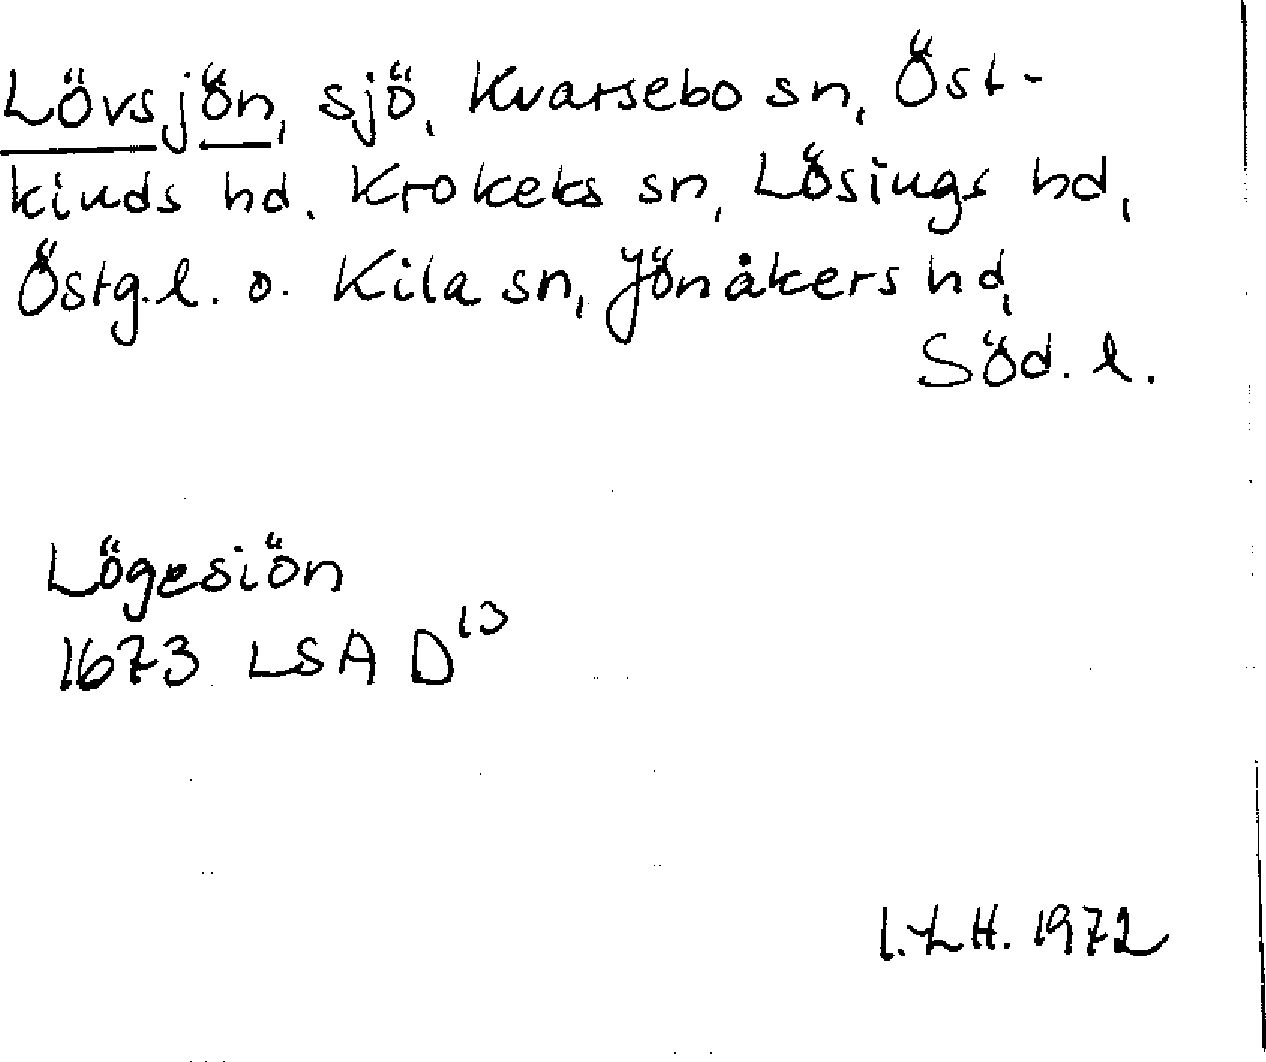 Lövsjön, sjö, Kvarsebo sn, Öst-
kinds hd. Krokeks sn, Lösings hd,
Östg.l. o. Kila sn, Jönåkers hd,
Söd. l.
Lögesiön
1673 LSA D¹³
1972